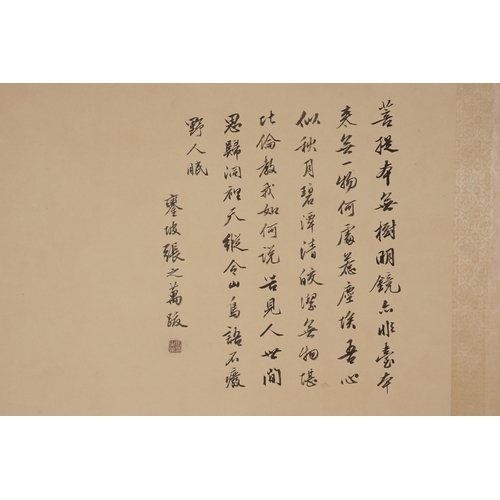 菩提本無樹明鏡亦非臺本
来無一物何處惹塵埃吾心
似秋月碧潭清皎潔無物堪
比倫教我如何說苦見人世間
思歸洞裡天縱令山鳥語不廢
野人眠
鑾坡張之萬跋